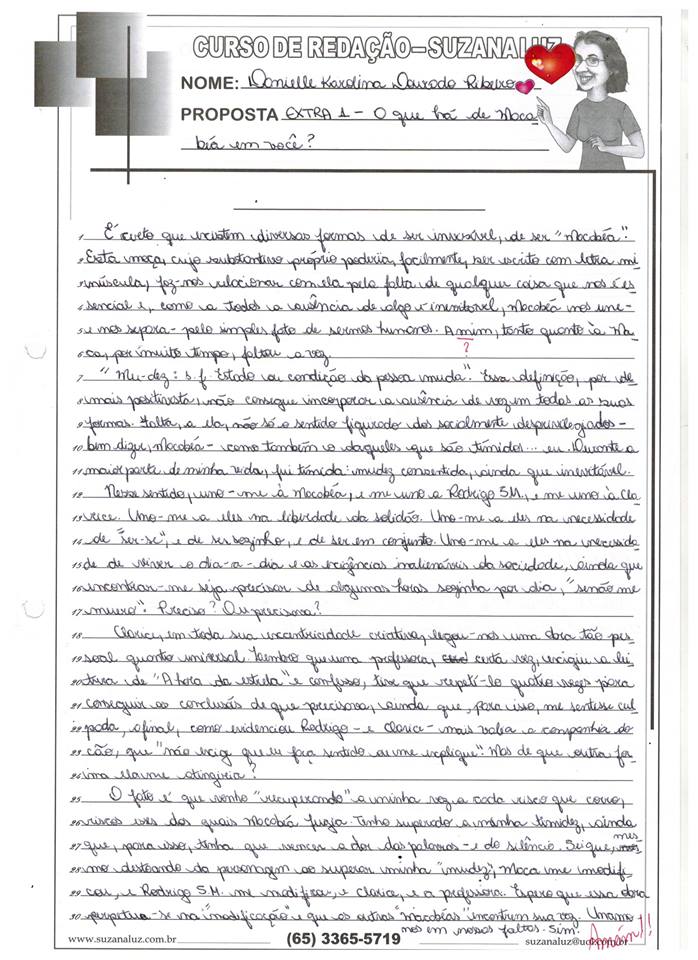 CURSO DE REDAÇÃO – SUZANA LUZ
NOME: Danielle Karolina Dourado Ribeiro
PROPOSTA EXTRA 1 – O que há de Maca-
béa em você?
1 É certo que existem diversas formas de ser invisível, de ser "Macabéa".
2 Esta moça, cujo substantivo próprio poderia, facilmente, ser escrito com letra mi-
3 núscula, faz-nos relacionar com ela pela falta de qualquer coisa que nos é es-
4 sencial e, como a todos a ausência de algo é inevitável, Macabéa nos une-
5 e nos separa - pelo simples fato de sermos humanos. A mim, tanto quanto à Ma-
6 ca, por muito tempo, faltou a voz. ?
7 "Mu-dez: s.f. Estado ou condição da pessoa muda". Essa definição, por de-
8 mais positivista, não consegue incorporar a ausência de voz em todas as suas
9 formas. Falta, a ela, não só o sentido figurado dos socialmente desprivilegiados -
10 bem dizer, Macabéa - como também o daqueles que são tímidos... eu. Durante a
11 maior parte de minha vida, fui tímida: mudez consentida, ainda que inevitável.
12 Nesse sentido, uno-me à Macabéa, e me uno a Rodrigo S.M., e me uno à Cla-
13 rice. Uno-me a eles na liberdade da solidão. Uno-me a eles na necessidade
14 de "ser-se", e de ser sozinho, e de ser em conjunto. Uno-me a eles na necessida-
15 de de viver o dia-a-dia e as exigências inalienáveis da sociedade, ainda que
16 encontrar-me seja precisar de algumas horas sozinha por dia, "senão me
17 muero". Preciso? Ou precisava?
18 Clarice, em toda sua excentricidade criativa, legou-nos uma obra tão pes-
19 soal quanto universal. Lembro que uma professora, certa vez, exigiu a lei-
20 tura de "A hora da estrela" e confesso, tive que repeti-lo quatro vezes para
21 conseguir as conclusões de que precisava, ainda que, para isso, me sentisse cul-
22 pada, afinal, como evidenciou Rodrigo - e Clarice - mais valia a companhia do
23 cão, que "não exige que eu faça sentido ou me explique". Mas de que outra for-
24 ma ela me atingiria?
25 O fato é que venho "recuperando" a minha voz a cada risco que corro,
26 riscos esses dos quais Macabéa fugia. Tenho superado a minha timidez, ainda
27 que, para isso, tenha que vencer a dor das palavras - e do silêncio. Sei que, mes-
28 mo destoando da personagem ao superar minha "mudez", Maca me modifi-
29 cou, e Rodrigo S.M. me modificou, e Clarice, e a professora. Espero que essa obra
30 perpetue-se na "modificação" e que as outras "Macabéas" encontrem sua voz. Unamo-
nos em nossas faltas. Sim. Amém!!
www.suzanaluz.com.br (65) 3365-5719 suzanaluz@uol.com.br